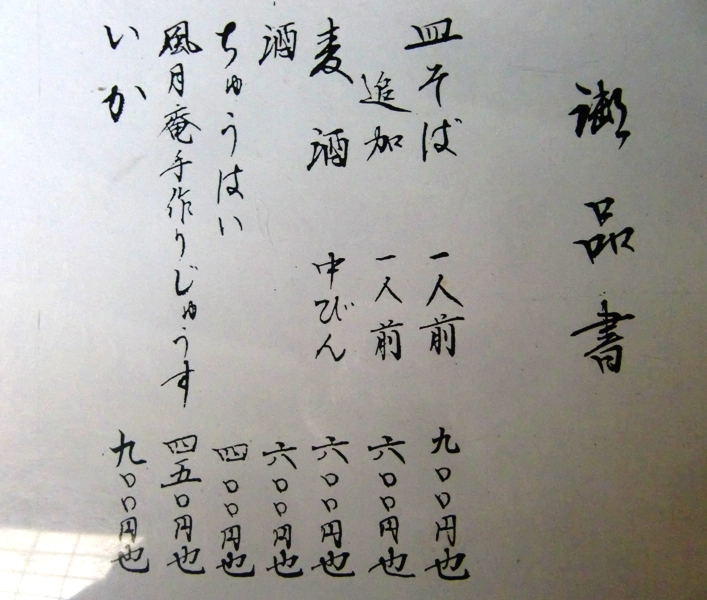 御品書
皿そば 一人前 九〇〇円也
追加 一人前 六〇〇円也
麦酒 中びん 六〇〇円也
酒 六〇〇円也
ちゅうはい 四〇〇円也
風月庵手作りじゅうす 四五〇円也
いか 九〇〇円也